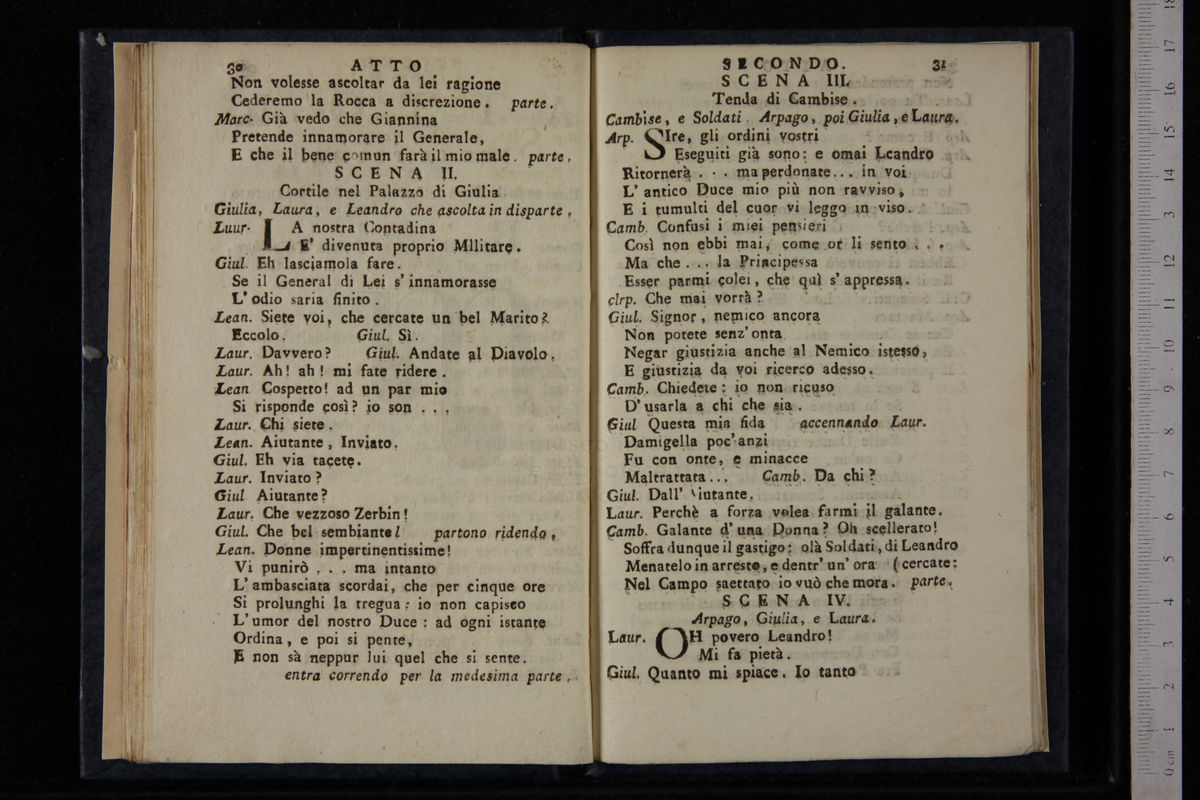 30 ATTO
Non volesse ascoltar da lei ragione
Cederemo la Rocca a discrezione. parte.
Marc· Già vedo che Giannina
Pretende innamorare il Generale,
E che il bene comun farà il mio male. parte.
SCENA II.
Cortile nel Palazzo di Giulia
Giulia, Laura, e Leandro che ascolta in disparte,
Laur· LA nostra Contadina
E' divenuta proprio Militare.
Giul. Eh lasciamola fare.
Se il General di Lei s'innamorasse
L'odio saria finito.
Lean. Siete voi, che cercate un bel Marito?
Eccolo. Giul. Sì.
Laur. Davvero? Giul. Andate al Diavolo.
Laur. Ah! ah! mi fate ridere.
Lean Cospetto! ad un par mio
Si risponde così? io son . . .
Laur. Chi siete.
Lean. Aiutante, Inviato.
Giul. Eh via tacete.
Laur. Inviato?
Giul Aiutante?
Laur. Che vezzoso Zerbin!
Giul. Che bel sembiante! partono ridendo,
Lean. Donne impertinentissime!
Vi punirò . . . ma intanto
L'ambasciata scordai, che per cinque ore
Si prolunghi la tregua: io non capisco
L'umor del nostro Duce: ad ogni istante
Ordina, e poi si pente,
E non sà neppur lui quel che si sente.
entra correndo per la medesima parte.
SECONDO. 31
SCENA III.
Tenda di Cambise.
Cambise, e Soldati. Arpago, poi Giulia, e Laura.
Arp. SIre, gli ordini vostri
Eseguiti già sono: e omai Leandro
Ritornerà . . . ma perdonate... in voi
L'antico Duce mio più non ravviso,
E i tumulti del cuor vi leggo in viso.
Camb. Confusi i miei pensieri
Così non ebbi mai, come or li sento . . .
Ma che . . . la Principessa
Esser parmi colei, che quì s'appressa.
Arp. Che mai vorrà?
Giul. Signor, nemico ancora
Non potete senz'onta
Negar giustizia anche al Nemico istesso,
E giustizia da voi ricerco adesso.
Camb. Chiedete: io non ricuso
D'usarla a chi che sia.
Giul Questa mia fida accennando Laur.
Damigella poc'anzi
Fu con onte, e minacce
Maltrattata... Camb. Da chi?
Giul. Dall'Aiutante.
Laur. Perchè a forza volea farmi il galante.
Camb. Galante d'una Donna? Oh scellerato!
Soffra dunque il gastigo: olà Soldati, di Leandro
Menatelo in arresto, e dentr'un'ora (cercate:
Nel Campo saettato io vuò che mora. parte.
SCENA IV.
Arpago, Giulia, e Laura.
Laur. OH povero Leandro!
Mi fa pietà.
Giul. Quanto mi spiace. Io tanto